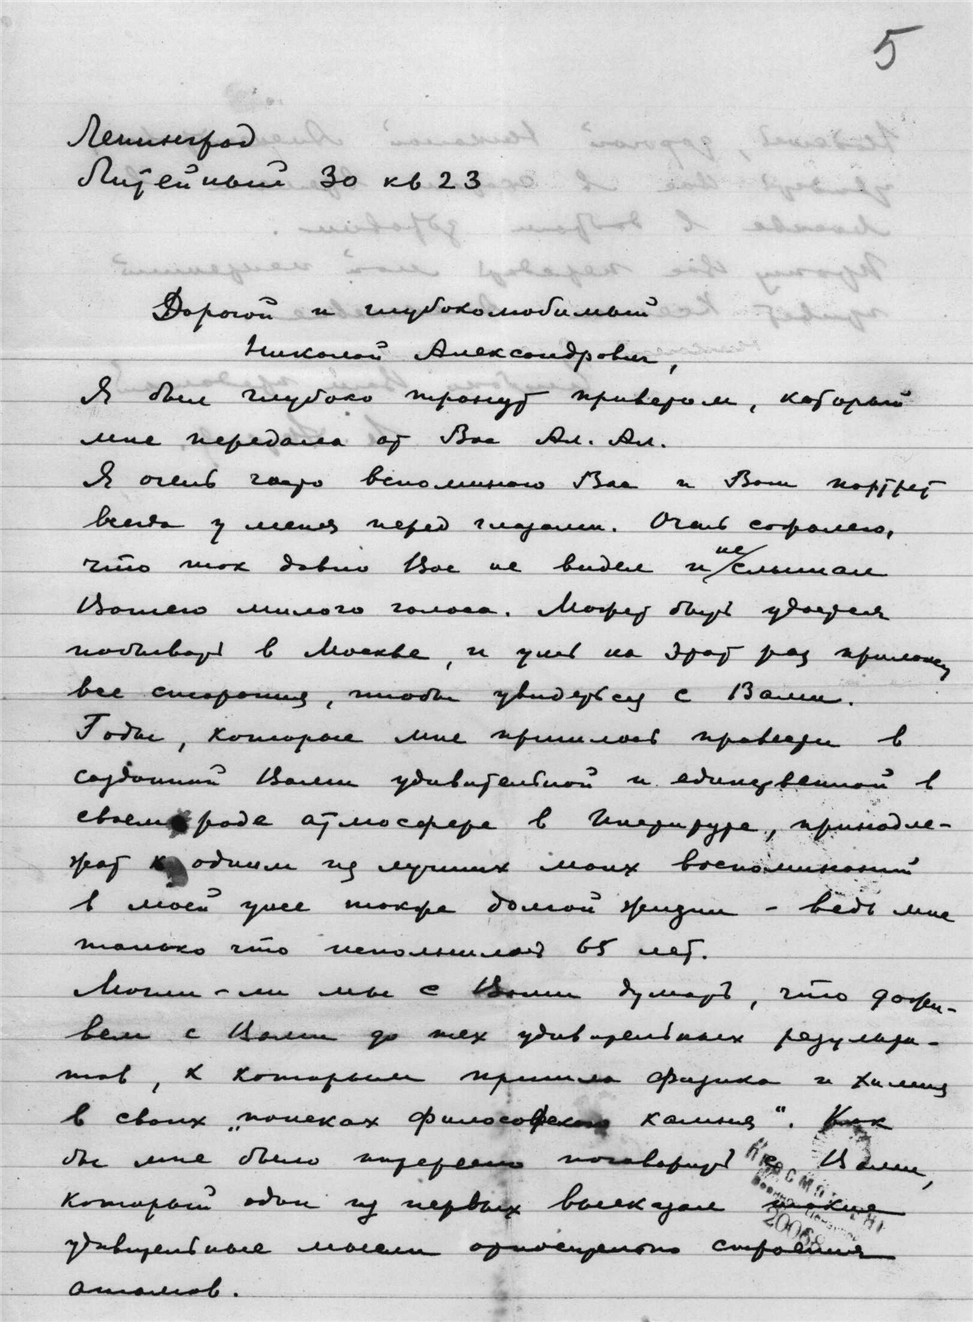 5
Ленинград
Литейный 30 кв 23
Дорогой и глубоколюбимый
Николай Александрович,
Я был глубоко тронут приветом, который
мне передала от Вас Ал. Ал.
Я очень часто вспоминаю Вас и Ваш портрет
всегда у меня перед глазами. Очень сожалею,
что так давно Вас не видел и не слышал
Вашего милого голоса. Может быть удастся
побывать в Москве, и уже на этот раз приложу
все старания, чтобы увидеться с Вами.
Годы, которые мне пришлось провести в
созданной Вами удивительной и единственной в
своем роде атмосфере в Институте, принадле-
жат к одним из лучших моих воспоминаний
в моей уже также долгой жизни – ведь мне
только что исполнилось 65 лет.
Могли-ли мы с Вами думать, что дожи-
вем с Вами до тех удивительных результа-
тов, к которым пришла физика и химия
в своих „поисках философского камня". Как
бы мне было интересно поговорить с Вами,
который один из первых высказал такие
удивительные мысли относительно строения
атомов.